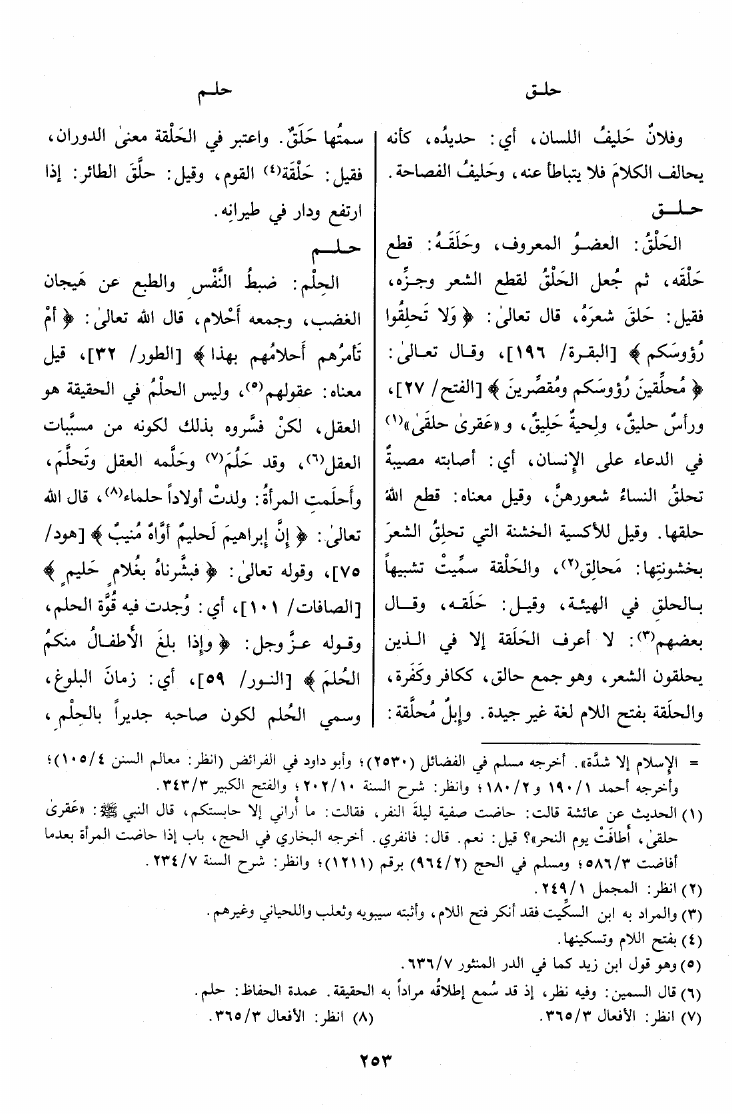 حلـق
حلـم
وفلانٌ حَليفُ اللسان، أي: حديدُه، كأنه
يحالف الكلامَ فلا يتباطأ عنه، وحَليفُ الفصاحة.
حلـق
الحَلْقُ: العضوُ المعروف، وحَلَقَهُ: قطع
حَلْقَه، ثم جُعل الحَلْقُ لقطع الشعر وجزِّه،
فقيل: حَلقَ شعرَهُ، قال تعالىٰ: ﴿ وَلا تَحلِقُوا
رُؤوسَكم ﴾ [البقرة/ ١٩٦]، وقـال تعـالىٰ:
﴿ مُحلِّقينَ رُؤوسَكم ومُقصِّرينَ ﴾ [الفتح/ ٢٧]،
ورأسٌ حليقٌ، ولِحيةٌ حَلِيقٌ، و «عَقرىٰ حلقَىٰ»(١)
في الدعاء على الإِنسان، أي: أصابته مصيبةٌ
تحلقُ النساءُ شعورهنَّ، وقيل معناه: قطع اللهُ
حلقها. وقيل للأكسية الخشنة التي تحلِقُ الشعرَ
بخشونتِها: مَحالِق(٢)، والحَلْقة سمِّيتْ تشبيهاً
بـالحلقِ في الهيئـة، وقيـل: حَلَقـه، وقـال
بعضهم(٣): لا أعرف الحَلَقة إلا في الـذين
يحلقون الشعر، وهو جمع حالق، ككافر وكَفَرة،
والحلَقة بفتح اللام لغة غير جيدة. وإبلٌ مُحلَّقة:
سمتُها حَلَقٌ. واعتبر في الحَلْقة معنىٰ الدوران،
فقيل: حَلْقَة(٤) القوم، وقيل: حلَّقَ الطائر: إذا
ارتفع ودار في طيرانِه.
حلـم
الحِلْم: ضبطُ النَّفْسِ والطبع عن هَيجان
الغضب، وجمعه أحْلام، قال الله تعالىٰ: ﴿ أمْ
تَأمرُهم أحلامُهم بهذا ﴾ [الطور/ ٣٢]، قيل
معناه: عقولهم(٥)، وليس الحلْمُ في الحقيقة هو
العقل، لكنْ فسَّروه بذلك لكونه من مسبَّبات
العقل(٦)، وقد حَلُمَ(٧) وحَلَّمه العقل وتَحلَّمَ،
وأحلَمتِ المرأةُ: ولدتْ أولاداً حلماء(٨)، قال الله
تعالىٰ: ﴿ إنَّ إبراهيمَ لَحليمٌ أوَّاهٌ مُنيبٌ ﴾ [هود/
٧٥]، وقوله تعالىٰ: ﴿ فبشَّرناهُ بغُلامٍ حَليمٍ ﴾
[الصافات/ ١٠١]، أي: وُجدت فيه قُوَّة الحلم،
وقـولـه عـزَّ وجل: ﴿ وإذا بلغَ الأطفـالُ منكمُ
الحُلمَ ﴾ [النـور/ ٥٩]، أي: زمانَ البلوغ،
وسمي الحُلم لكون صاحبه جديراً بالحِلْم،
= الإسلام إلا شدَّة». أخرجه مسلم في الفضائل (٢٥٣٠)؛ وأبو داود في الفرائض (انظر: معالم السنن ١٠٥/٤)؛
وأخرجه أحمد ١٩٠/١ و١٨٠/٢؛ وانظر: شرح السنة ٢٠٢/١٠؛ والفتح الكبير ٣٤٣/٣.
(١) الحديث عن عائشة قالت: حاضت صفية ليلةَ النفر، فقالت: ما أُراني إلا حابستكم، قال النبي ﷺ: «عَقرىٰ
حلقىٰ، أطافَتْ يوم النحر»؟ قيل: نعم. قال: فانفري. أخرجه البخاري في الحج، باب إذا حاضت المرأة بعدما
أفاضت ٥٨٦/٣؛ ومسلم في الحج (٩٦٤/٢) برقم (١٢١١)؛ وانظر: شرح السنة ٢٣٤/٧.
(٢) انظر: المجمل ٢٤٩/١.
(٣) والمراد به ابن السكِّيت فقد أنكر فتح اللام، وأثبته سيبويه وثعلب واللحياني وغيرهم.
(٤) بفتح اللام وتسكينها.
(٥) وهو قول ابن زيد كما في الدر المنثور ٦٣٦/٧.
(٦) قال السمين: وفيه نظر، إذ قد سُمع إطلاقُه مراداً به الحقيقة. عمدة الحفاظ: حلم.
(٧) انظر: الأفعال ٣٦٥/٣.
(٨) انظر: الأفعال ٣٦٥/٣.
٢٥٣